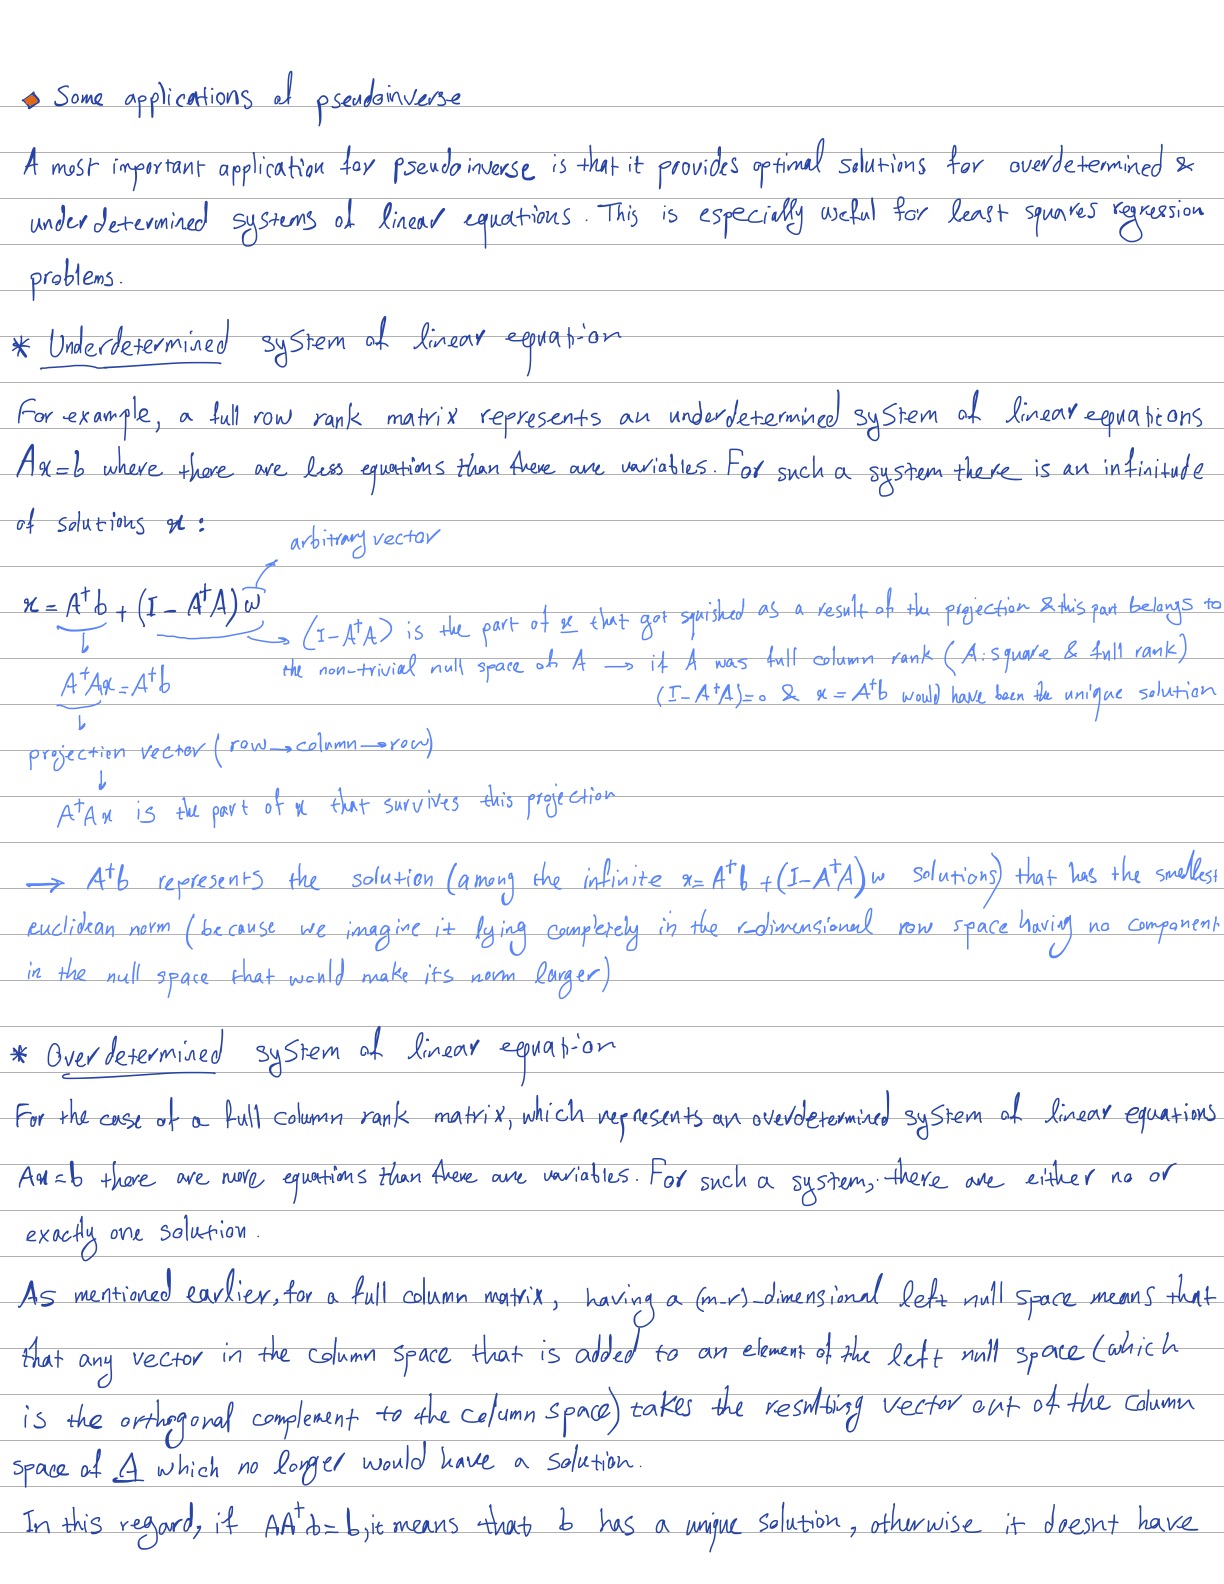 Some applications of pseudoinverse
A most important application for pseudoinverse is that it provides optimal solutions for overdetermined &
underdetermined systems of linear equations. This is especially useful for least squares regression
problems.
* Underdetermined system of linear equation
For example, a full row rank matrix represents an underdetermined system of linear equations
Ax=b where there are less equations than there are variables. For such a system there is an infinitude
of solutions x :
arbitrary vector
x = A⁺b + (I - A⁺A) w
(I-A⁺A) is the part of x that got squished as a result of the projection & this part belongs to
the non-trivial null space of A → if A was full column rank (A: square & full rank)
(I-A⁺A)=0 & x = A⁺b would have been the unique solution
A⁺Ax = A⁺b
projection vector (row→column→row)
A⁺Ax is the part of x that survives this projection
→ A⁺b represents the solution (among the infinite x= A⁺b +(I-A⁺A)w solutions) that has the smallest
euclidean norm (because we imagine it lying completely in the r-dimensional row space having no component
in the null space that would make its norm larger)
* Overdetermined system of linear equation
For the case of a full column rank matrix, which represents an overdetermined system of linear equations
Ax=b there are more equations than there are variables. For such a system, there are either no or
exactly one solution.
As mentioned earlier, for a full column matrix, having a (m-r)-dimensional left null space means that
that any vector in the column space that is added to an element of the left null space (which
is the orthogonal complement to the column space) takes the resulting vector out of the column
space of A which no longer would have a solution.
In this regard, if AA⁺b=b, it means that b has a unique solution, otherwise it doesnt have